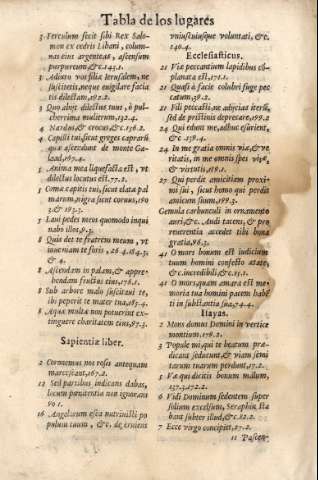 Tabla de los lugares
3 Ferculum fecit sibi Rex Salo-
mon ex cedris Libani, colum-
nas eius argenteas, ascensum
purpureum, &c.143.1.
3 Adiuro vos filiæ Ierusalem, ne
suscitetis, neque euigilare facia
tis dilectam,192.2.
5 Quo abijt dilectus tuus, ò pul-
cherrima mulierum,132.4.
4 Nardus, & crocus &c.136.2.
4 Capilli tui, sicut greges caprarũ
quæ ascenderunt de monte Ga-
laad,167.4.
5 Anima mea liquefacta est, vt
dilectus locutus est.77.2.
5 Comæ capitis tui, sicut elatæ pal
marum, nigræ sicut coruus,
& 183.3.
5 Laui pedes meos quomodo inqui
nabo illos,
8 Quis det te fratrem meum, vt
inueniam te foris,
& 4.
8 Ascendam in palmam, & appre-
bendam fructus eius,176.1.
8 Sub arbore malo suscitaui te,
ibi peperit te mater tua,
8 Aquæ multæ non potuerunt ex-
tinguere charitatem
Sapientiæ liber.
2 Coronemus nos rosis antequam
marcescant,167.2.
12 Sed partibus iudicans dabas,
locum pœnitentiæ non ignorans
16 Angelorum esca nutriuisti po
pulum tuum, &c. de seruiens
vniuscuiusque voluntati, &c.
140.4.
Ecclesiasticus.
21 Via peccantium lapidibus com-
planata est,171.1.
21 Quasi à facie colubri fuge pec-
catum,
21 Fili peccasti, ne adijcias iterũ,
sed de pristinis deprecare,199.2
24 Qui edunt me, adhuc esurient,
&c.
24 In me gratia omnis viæ, & ve-
ritatis, in me omnis spes vitæ,
& virtutis,
27 Qui perdit amicitiam proxi-
mi sui, sicut homo qui perdit
amicum suum,
Gemula carbunculi in ornamento
auri, &c. Audi tacens, & pro
reuerentia accedet tibi bona
gratia,96.3.
41 O mors bonum est iudicium
tuum homini confecto ætate,
& c.incredibili,
41 O mors, quam amara est me-
moria tua homini pacem habẽ
ti in substantia sua,74.4.
Isayas.
2 Mons domus Domini in vertice
montium,176.2.
3 Popule mi, qui te beatum præ-
dicant seducunt, & viam semi
tarum tuarum perdunt,17.2.
5 Væ qui dicitis bonum malum,
137.3,172.2.
6 Vidi Dominum sedentem super
solium excelsum, Seraphin sta
bant subter illud, &c.82.2.
7 Ecce virgo concipiet,
11 Pascen-